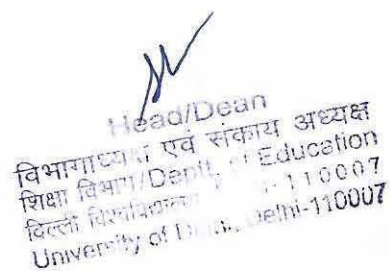 Head/Dean
विभागाध्यक्ष एवं संकाय अध्यक्ष
शिक्षा विभाग/Deptt. Education
दिल्ली 110007
University of Delhi-110007